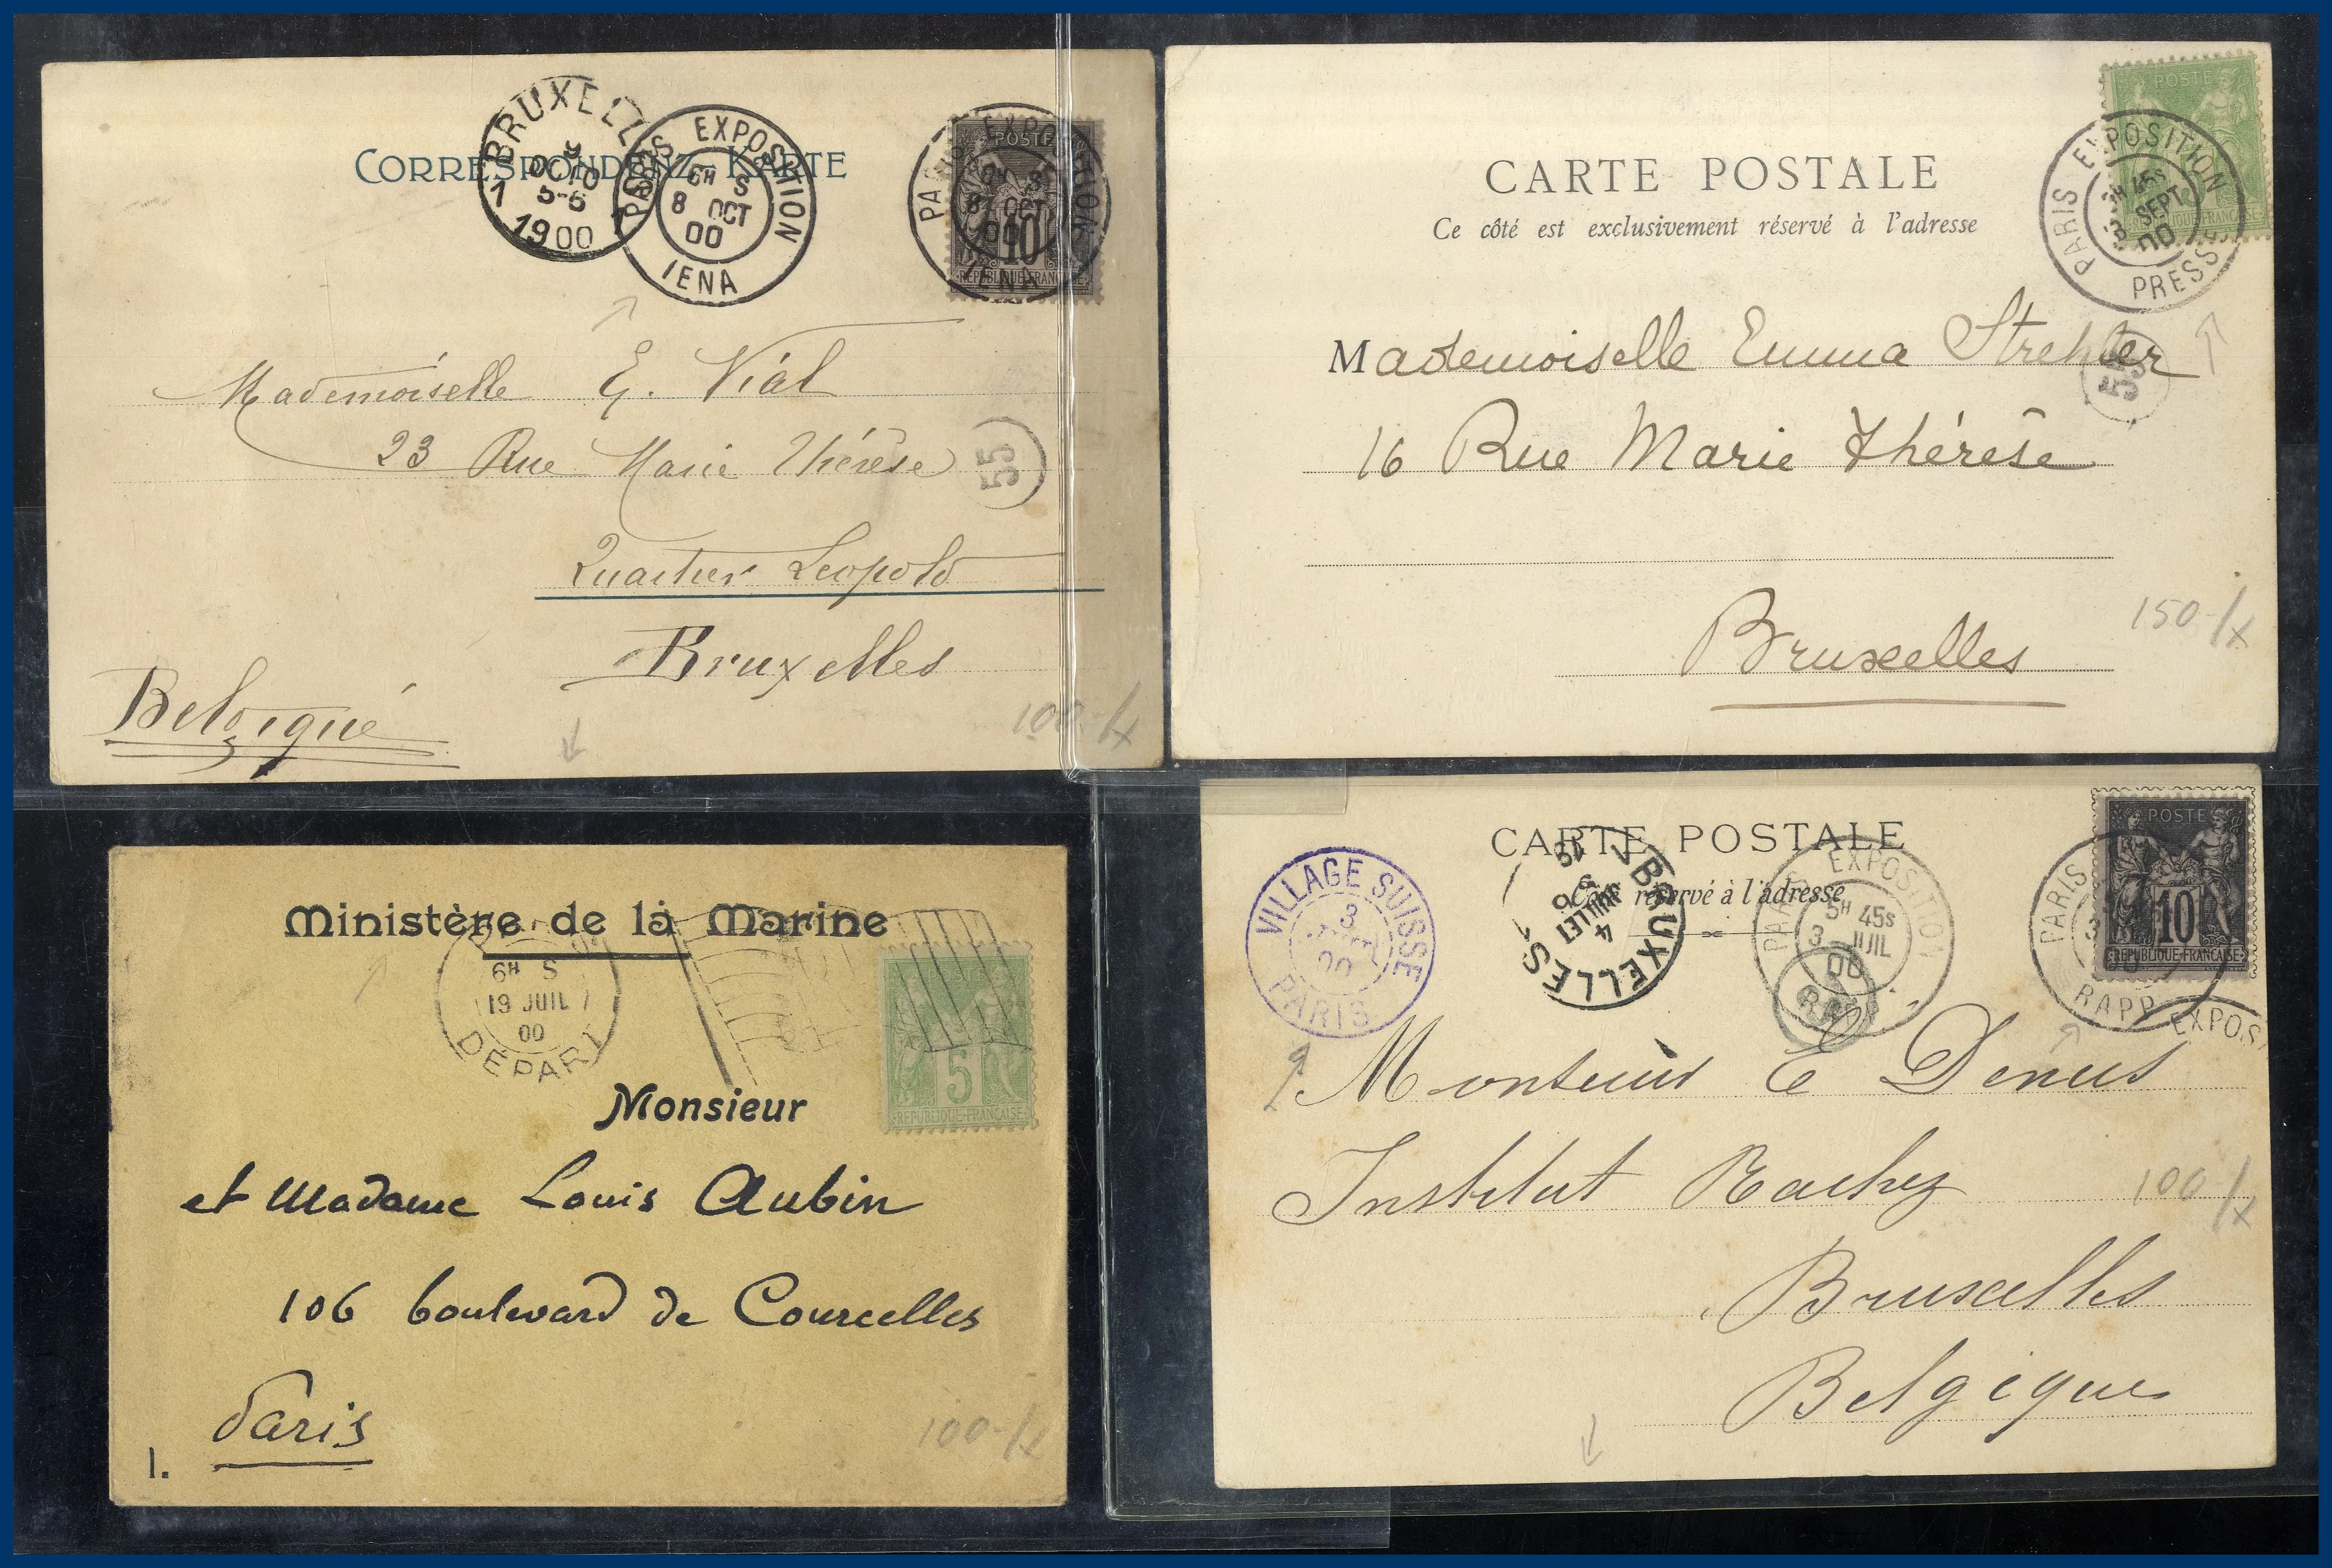 BRUXELLES
1 9 OCTO 5-6 1
1900
PARIS EXPOSITION
6H S
8 OCT
00
IENA
PARIS EXPOSITION
OCT
IENA
POSTE
10
REPUBLIQUE FRANCAISE
CORRESPONDENZ-KARTE
Mademoiselle E. Vial
23 Rue Marie Thérèse
55
Quartier Leopold
Bruxelles
Belgique
100-/x
POSTE
REPUBLIQUE FRANCAISE
PARIS EXPOSITION
45S
SEPT
00
PRESSE
CARTE POSTALE
Ce côté est exclusivement réservé à l'adresse
Mademoiselle Emma Strehler
55
16 Rue Marie Thérèse
Bruxelles
150-/x
Ministère de la Marine
6H S
19 JUIL
00
DÉPART
5
REPUBLIQUE FRANCAISE
Monsieur
et Madame Louis Aubin
106 boulevard de Courcelles
Paris
1.
100-/x
CARTE POSTALE
réservé à l'adresse
VILLAGE SUISSE
3
00
PARIS
BRUXELLES
4
JUILLET
PARIS EXPOSITION
5H 45S
3 JUIL
00
RAPP
POSTE
10
REPUBLIQUE FRANCAISE
PARIS
RAPP
EXPOS
Monsieur E Denus
Institut Rachez
100-/x
Bruxelles
Belgique